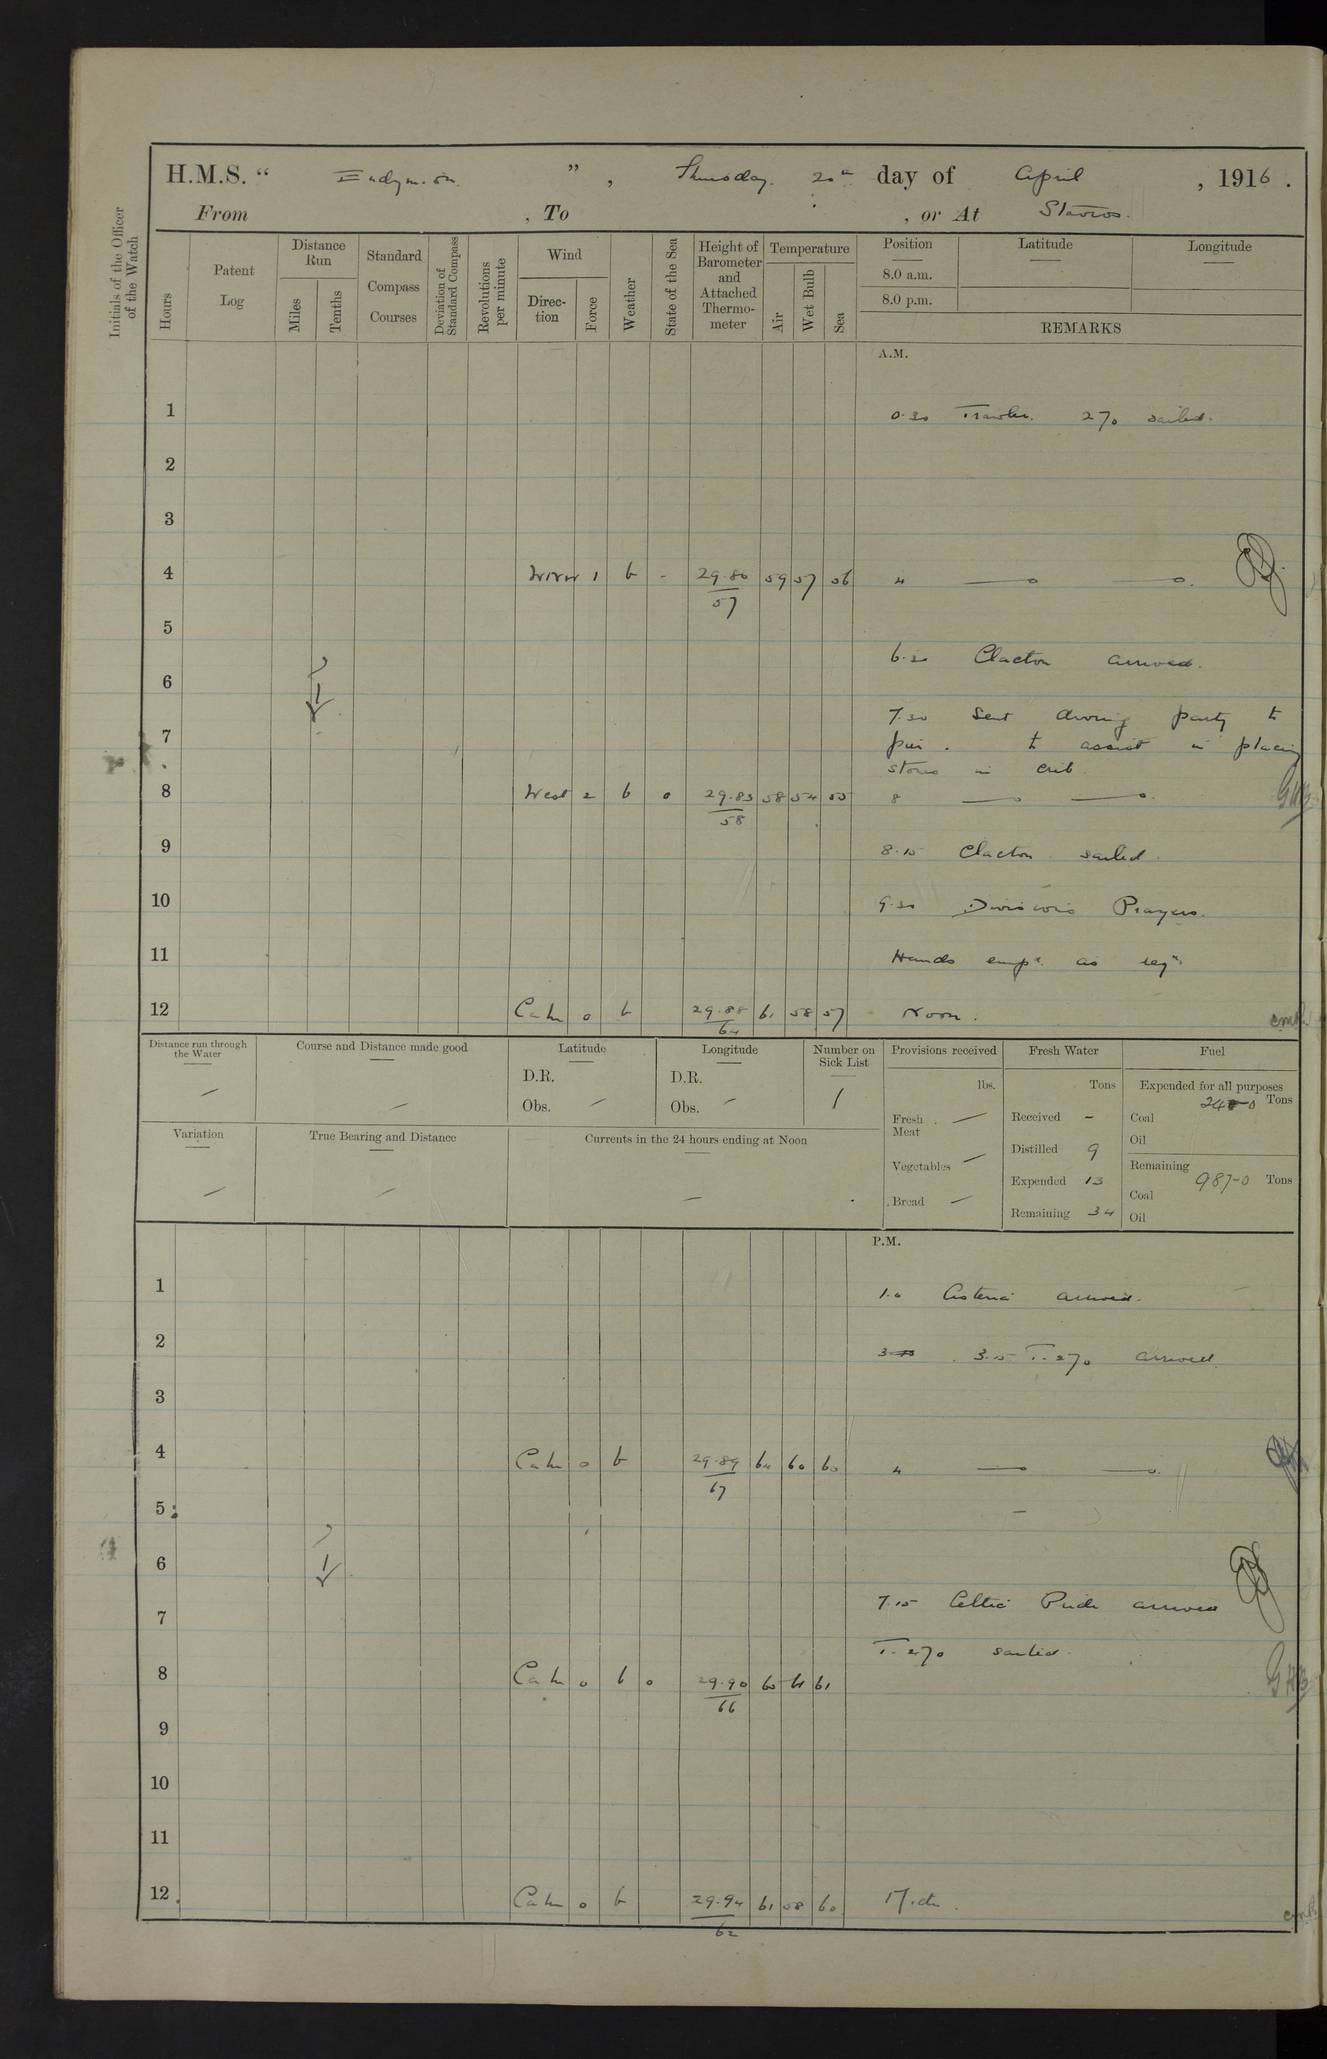 H.M.S. “ Endymion ” , Thursday. 20th day of April , 1916 .
From , To , or At Stavros.
Initials of the Officer of the Watch
Hours
Patent Log
Distance Run
Miles
Tenths
Standard Compass Courses
Deviation of Standard Compass
Revolutions per minute
Wind
Direc-tion
Force
Weather
State of the Sea
Height of Barometer and Attached Thermo-meter
Temperature
Air
Wet Bulb
Sea
Position
8.0 a.m.
8.0 p.m.
Latitude
Longitude
REMARKS
A.M.
1 0.30 Trawler. 270 sailed.
2
3
4 WNW 1 b - 29.80 59 57 56 4
57
5
6.20 Clacton arrived.
6
7.30 Sent diving party to
7 pier. to assist in placing
stones in crib
8 West 2 b 0 29.83 58 54 55 8 GHB
58
9 8.15 Clacton sailed.
10 9.30 Divisions Prayers.
11 Hands empd. as reqd.
12 Calm 0 b 29.88 61 58 57 Noon.
64
Distance run through the Water
Course and Distance made good
Latitude
D.R.
Obs. –
Longitude
D.R.
Obs. –
Number on Sick List
1
Provisions received
lbs.
Fresh Meat –
Vegetables –
Bread –
Fresh Water
Tons
Received –
Distilled 9
Expended 13
Remaining 34
Fuel
Expended for all purposes
Tons
Coal
Oil
Remaining
987-0 Tons
Coal
Oil
Variation
True Bearing and Distance
Currents in the 24 hours ending at Noon
P.M.
1 1.0 arrived.
2 3.15 T. 270 arrived.
3
4 Calm 0 b 29.89 64 60 60 4
67
5
6
7 7.15 Celtic Pride arrived
T. 270 sailed.
8 Calm 0 b 0 29.90 65 61 61 GHB
66
9
10
11
12 Calm 0 b 29.94 61 58 60
62